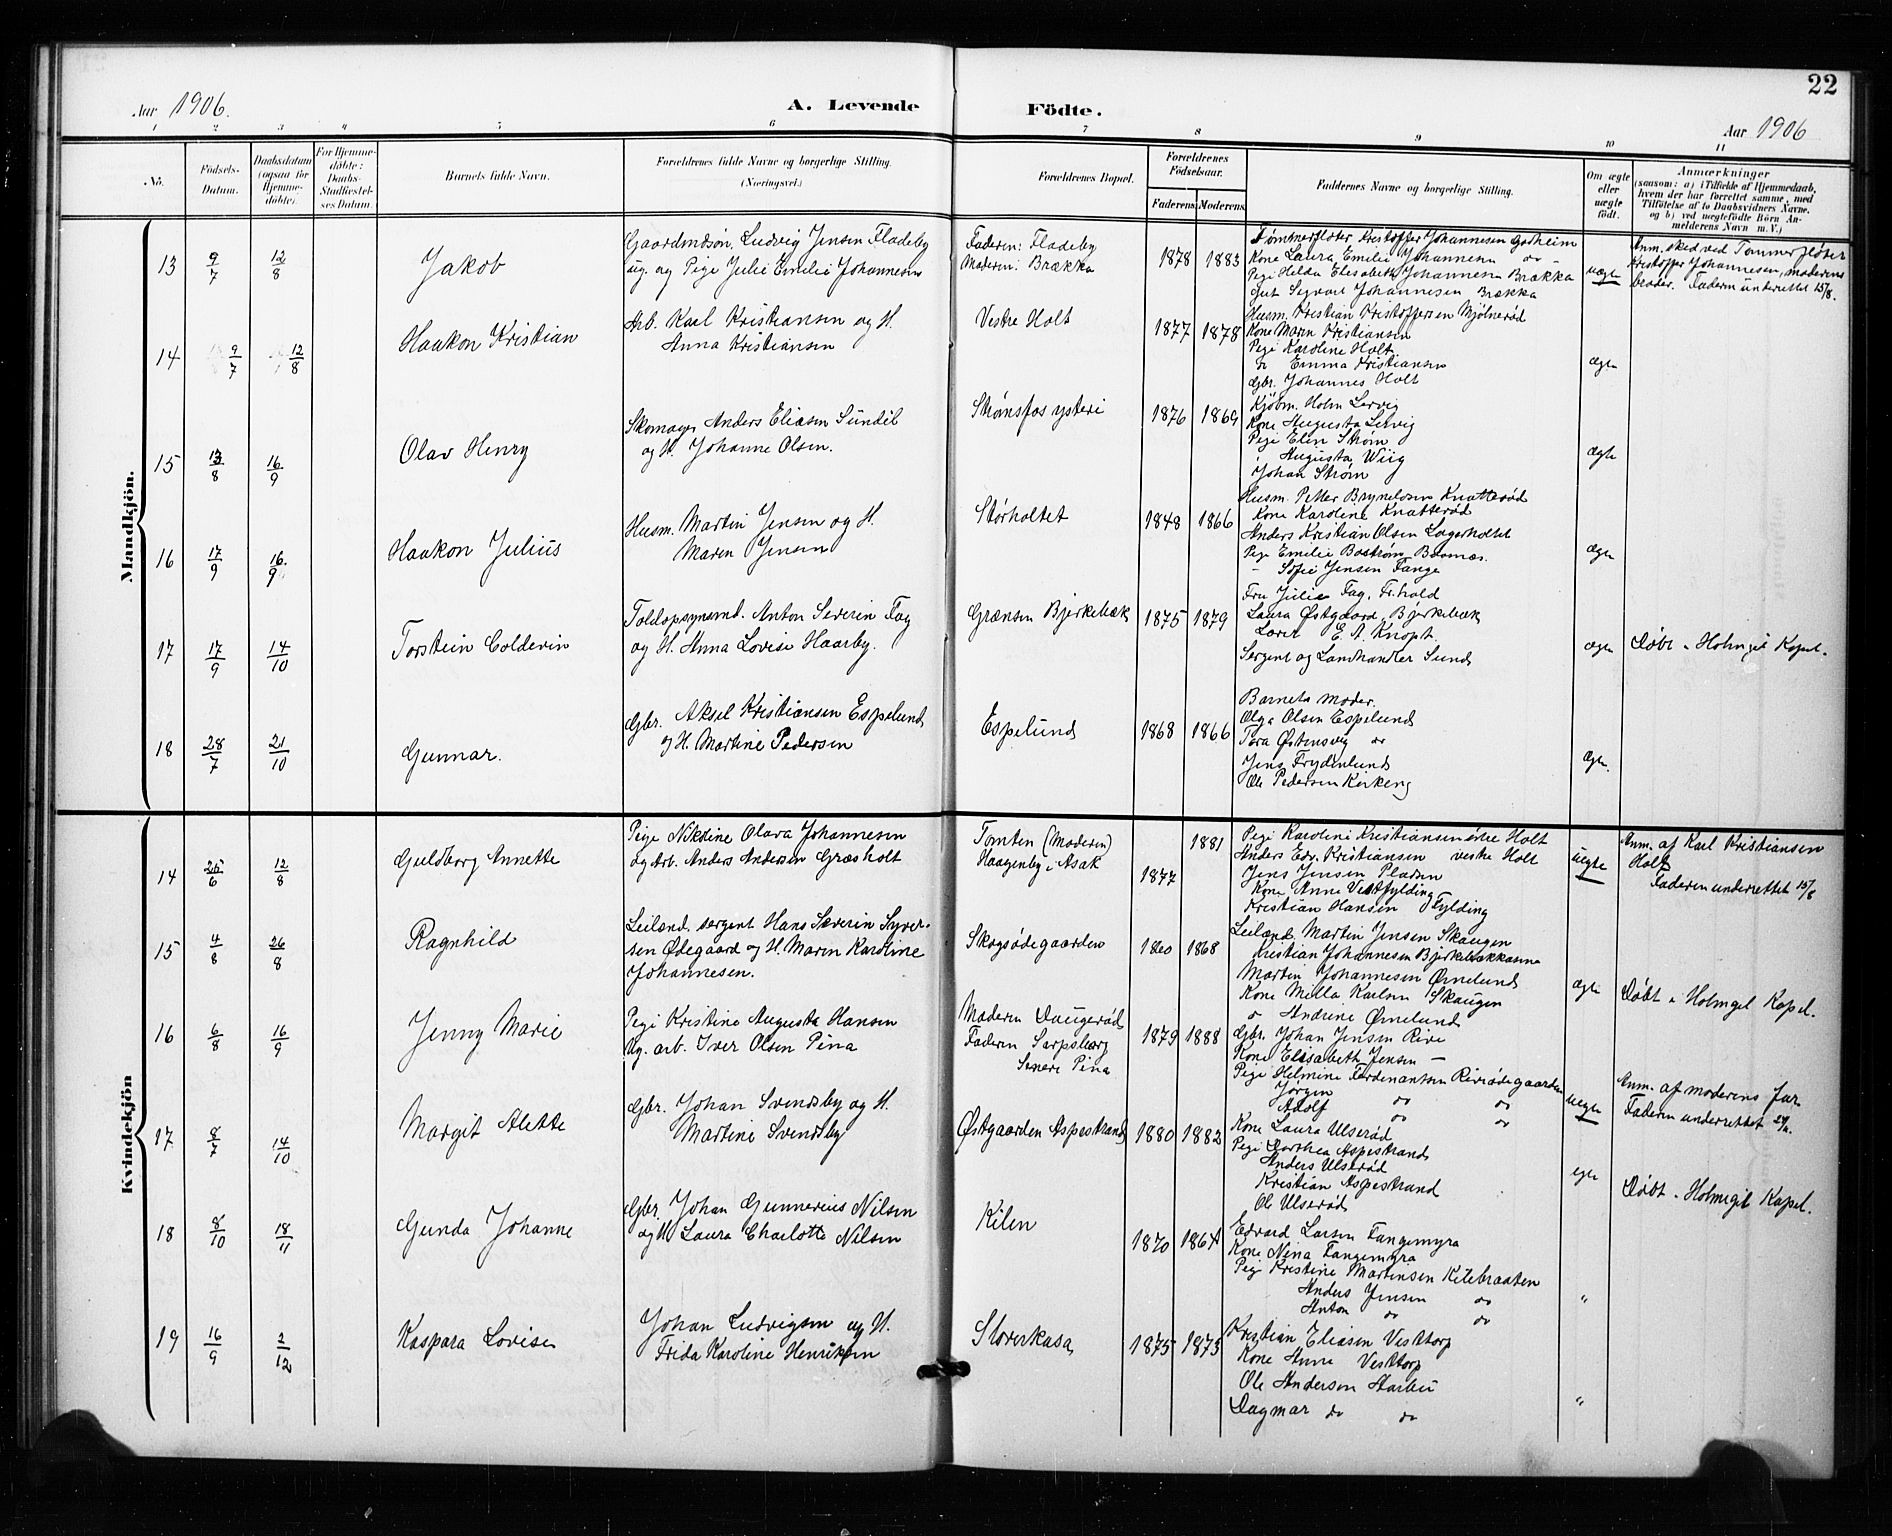 22
Aar 1906.
A. Levende Födte.
Aar 1906
1 2 3 4 5 6 7 8 9 10 11
No.
Födsels-Datum.
Daabsdatum (ogsaa for Hjemme-döbte).
For Hjemme-döbte: Daabs-Stadfæstel-ses Datum.
Barnets fulde Navn.
Forældrenes fulde Navne og borgerlige Stilling. (Næringsvei.)
Forældrenes Bopæl.
Forældrenes Födselsaar.
Faderens. Moderens.
Faddernes Navne og borgerlige Stilling.
Om ægte eller uægte födt.
Anmærkninger
(saasom: a) i Tilfælde af Hjemmedaab,
hvem der har forrettet samme, med
Tilföielse af to Daabsvidners Navne,
og b) ved uægtefödte Börn An-
melderens Navn m. V.)
Mandkjön.
13 9/7 12/8 Jakob
Gaardmdsøn. Ludvig Jensen Fladeby
ug. og Pige Julie Emelie Johannesen
Faderen: Fladeby
Moderen: Brækka
1878 1883
Tømmerfløter Kristoffer Johannesen Godheim
Kone Laura Emelie Johannesen do
Pige Hilda Elisabeth Johannesen Brækka
Gut Sigvart Johannesen Brækka
uægte
Anm. sked ved Tømmerfløter
Kristoffer Johannesen, moderens
broder. Faderen underrettet 15/8.
14 9/7 12/8 Haakon Kristian
Arb. Karl Kristiansen og H.
Anna Kristiansen
Vestre Holt
1877 1878
Husm. Kristian Kristoffersen Mjølnerød
Kone Maren Kristiansen
Pige Karoline Holt
do Emma Kristiansen
Gbr. Johannes Holt
ægte
15 13/8 16/9 Olav Henry
Skomager Anders Eliasen Sundel
og H. Johanne Olsen.
Strømsfos ysteri
1876 1869
Kjøbm. Holm Lervig
Kone Augusta Lervig
Pige Elen Strøm
Augusta Wiig
Johan Strøm
ægte
16 17/9 16/9 Haakon Julius
Husm. Martin Jensen og H.
Maren Jensen
Størholtet
1848 1866
Husm. Petter Brynelsen Knatterød
Kone Karoline Knatterød
Anders Kristian Olsen Lagerholtet
Pige Emelie Bostrøm
- Sofie Jensen Tange
ægte
17 17/9 14/10 Torstein Colderin
Toldopsynsmd. Anton Severin Fag
og H. Anna Lovise Haarby.
Grænsen Bjerkebæk
1875 1879
Fru Julie Fag, Fr.hald
Laura Østgaard, Bjerkebæk
Lærer E. A. Knopt.
Sergent og Landhandler Sund
ægte
Døbt i Holmgil Kapel.
18 28/7 21/10 Gunnar.
Gbr. Aksel Kristiansen Espelund
og H. Martine Pedersen
Espelund
1868 1866
Barnets moder.
Olga Olsen Espelund
Tora Østensvig do
Jens Frydenlund
Ole Pedersen Kirkeng
ægte.
Kvindekjön
14 25/6 12/8 Guldborg Annette
Pige Nikoline Olava Johannesen
og Arb. Anders Andersen Græsholt
Tomten (Moderen)
Haagenby i Asak
1877 1881
Pige Karoline Kristiansen østre Holt
Anders Edv. Kristiansen vestre Holt
Jens Jensen Pladsen
Kone Anne Vestfylding
Kristian Hansen Fylding
uegte
Anm. af Karl Kristiansen
Holt
Faderen underrettet 15/8
15 4/8 26/8 Ragnhild
Leilænd. sergent Hans Severin Syver-
sen Ødegaard og H. Maren Karoline
Johannesen.
Skogsødegaarden
1868
Leilænd. Martin Jensen Skaugen
Kristian Johannesen Bjerkebækkasa
Martin Johannesen Ørnelund
Kone Milla Karlsen Skaugen
do Andrine Ørnelund
ægte
Døbt i Holmgil Kapel.
16 6/8 16/9 Jenny Marie
Pige Kristine Augusta Hansen
Ug. arb. Iver Olsen Pina
Moderen Daugerød
Faderen Sarpsborg
Senere Pina
1879 1888
Gbr. Johan Jensen Rive
Kone Elisabeth Jensen -
Pige Helmine Ferdenantsen Rivisødegaarden
Jørgen do do
Adolf do do
uegte
Anm. af moderens far
Faderen underrettet
17 8/7 14/10 Margit Alette
Gbr. Johan Svendsby og H.
Martine Svendsby
Østgaarden Aspestrand
1880 1882
Kone Laura Ulserød
Pige Dorthea Aspestrand
Anders Ulserød
Kristian Aspestrand
Ole Ulserød
egte
Døbt i Holmgil Kapel.
18 8/10 18/11 Gunda Johanne
Gbr. Johan Gunnerius Nilsen
og H. Laura Charlotte Nilsen
Kilen
1870 1864
Edvard Larsen Tangemyra
Kone Nina Tangemyra
Pige Kristine Martinsen Kilebraaten
Anders Jensen do
Anton do do
"
19 16/9 2/12 Kaspara Lovise
Johan Ludvigsen og H.
Frida Karoline Henriksen
Sloreskasa
1875 1873
Kristian Eliasen Vesttorp
Kone Anne Vesttorp
Ole Andersen Harbu
Dagmar do do
"